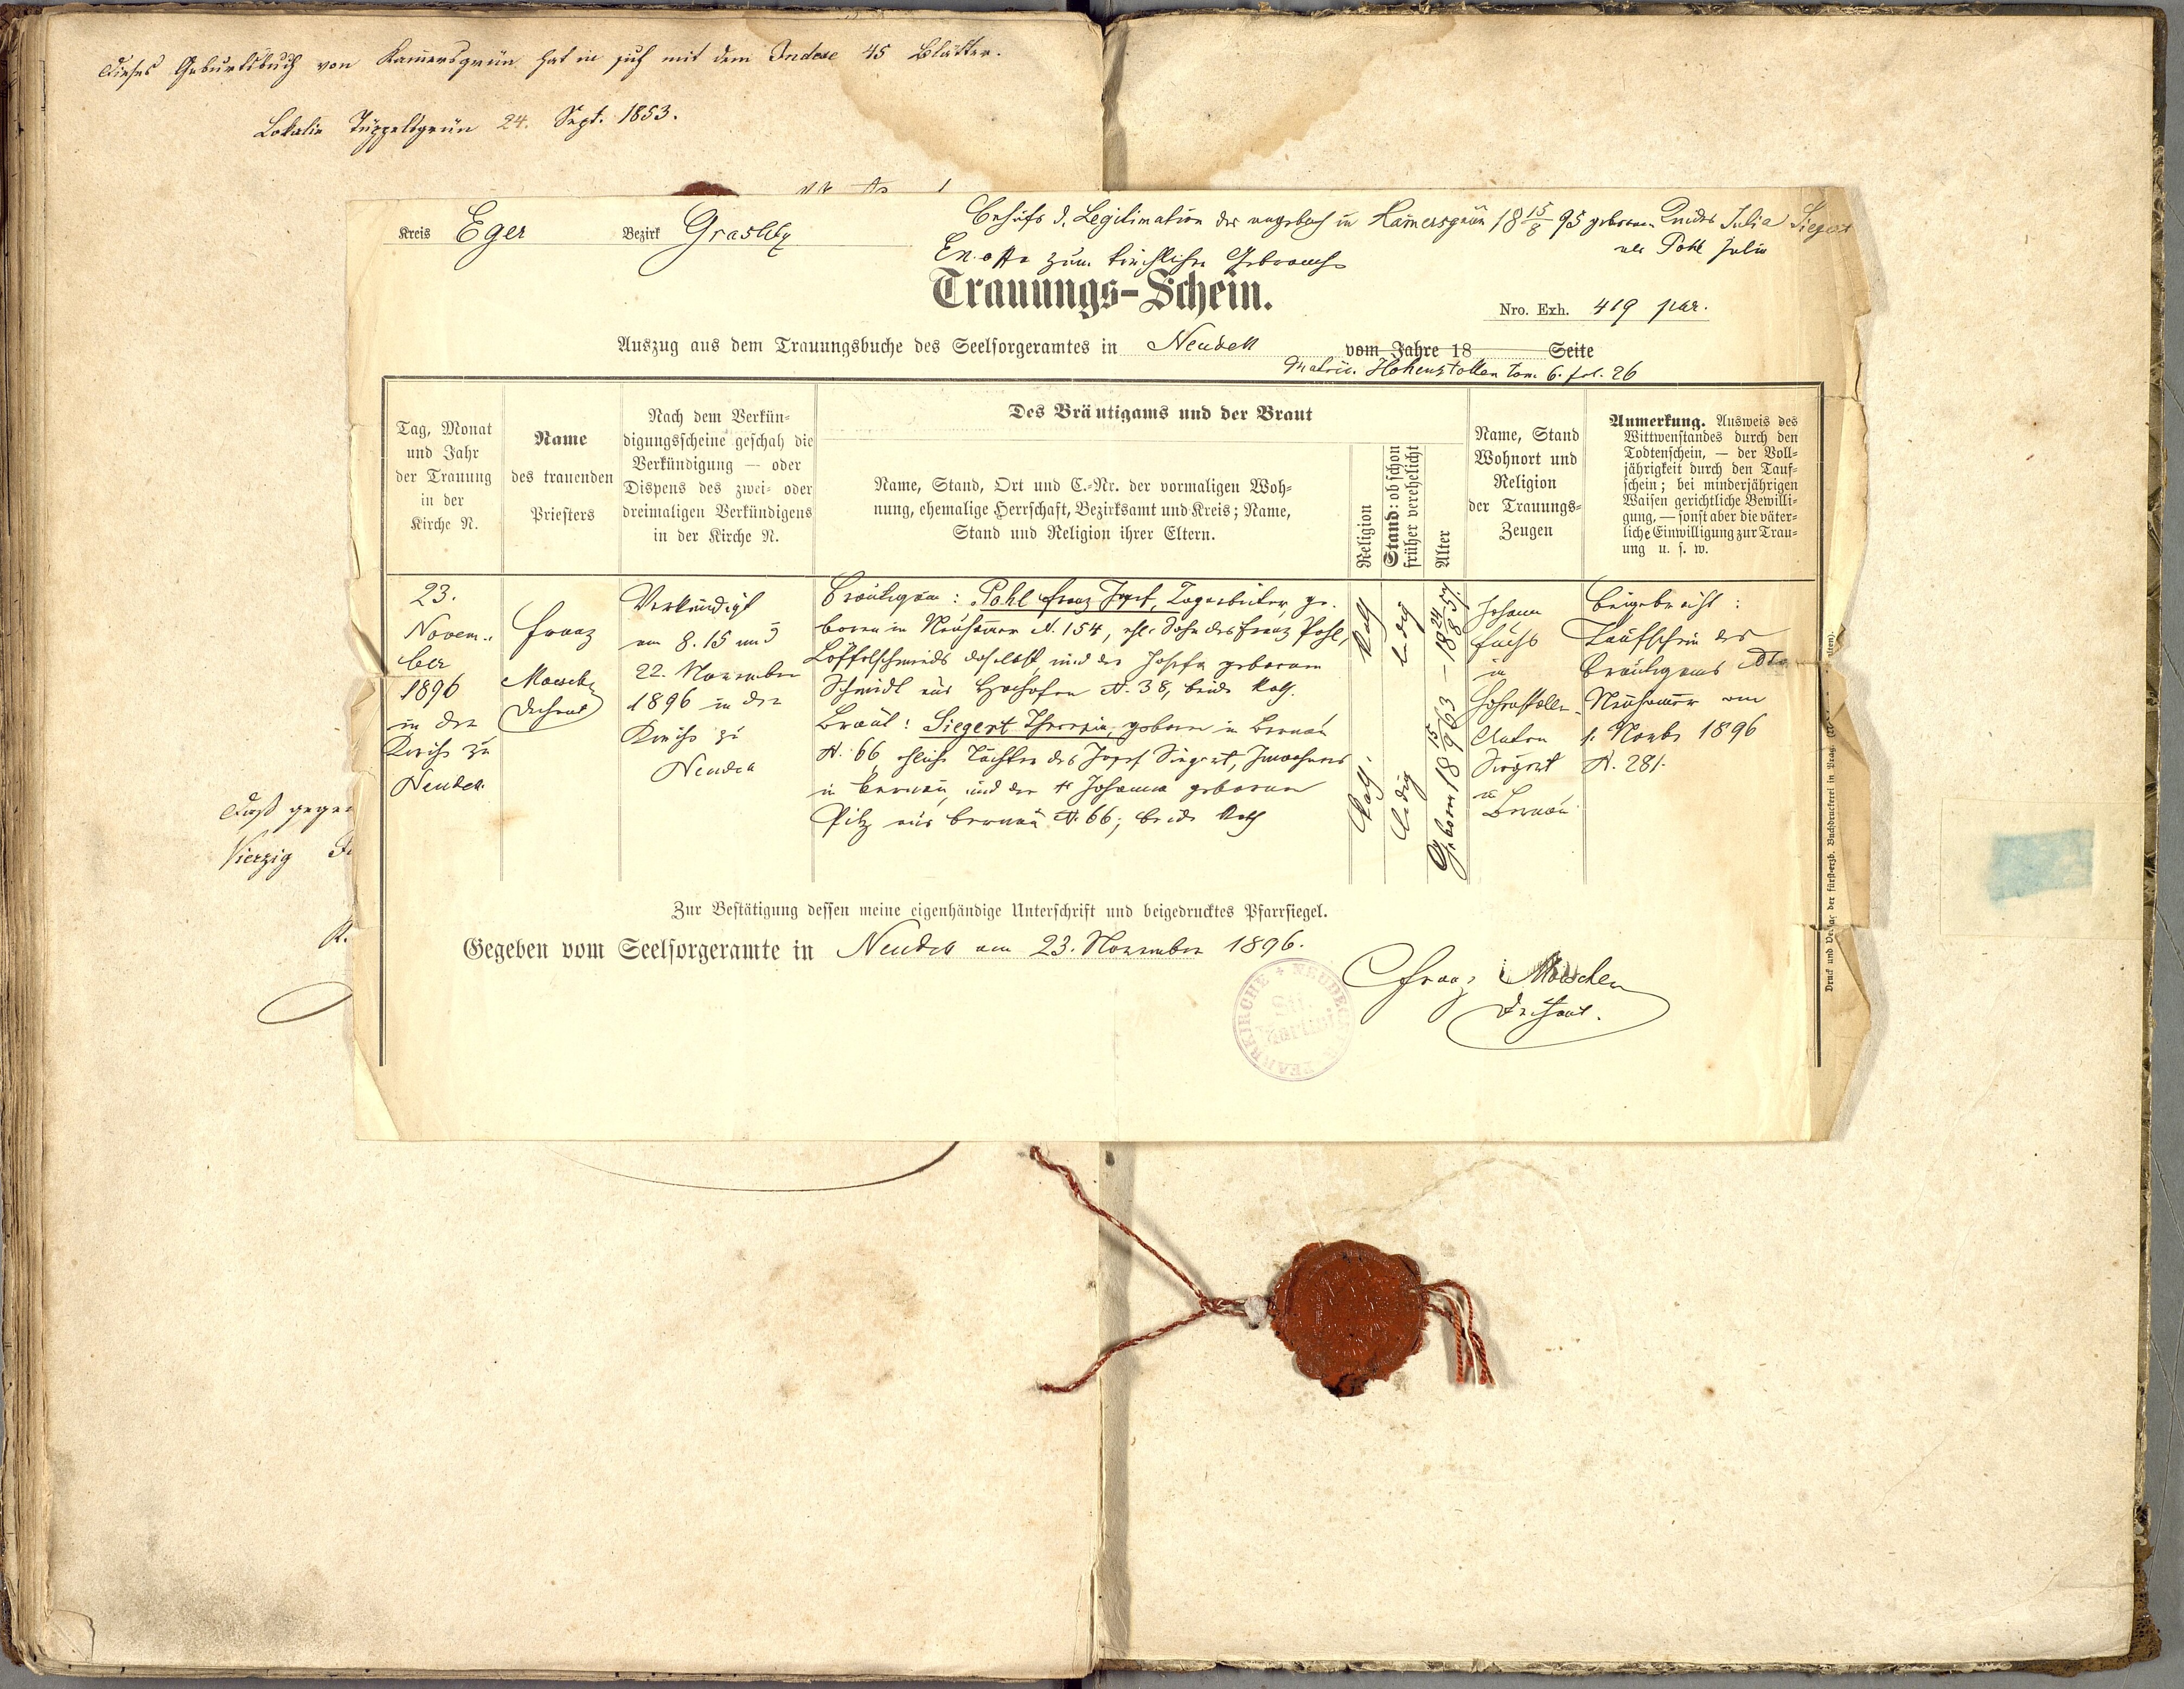 Dieses Geburtsbuch von Kam̄ersgrün hat in sich mit dem Indexe 45 Blätter.
Lokalie Tüppelsgrün 24. Sept. 1853.
Kreis Eger Bezirk Graslitz
Behufs d. Legitimation des angeblich in Kam̄ersgrün 18 15/8 95 geborenen Kindes Julia Siegert
als Pohl Julia
Ex offo zum kirchlichen Gebrauche
Trauungs-Schein.
Nro. Exh. 419 par.
Auszug aus dem Trauungsbuche des Seelsorgeramtes in Neudek vom Jahre 18 Seite
Matric. Hohenstollen tom. 6. fol. 26
Tag, Monat
und Jahr
der Trauung
in der
Kirche N.
Name
des trauenden
Priesters
Nach dem Verkün-
digungsscheine geschah die
Verkündigung — oder
Dispens des zwei- oder
dreimaligen Verkündigens
in der Kirche N.
Des Bräutigams und der Braut
Name, Stand, Ort und C.-Nr. der vormaligen Woh-
nung, ehemalige Herrschaft, Bezirksamt und Kreis; Name,
Stand und Religion ihrer Eltern.
Religion
Stand: ob schon
früher verehelicht
Alter
Name, Stand
Wohnort und
Religion
der Trauungs-
Zeugen
Anmerkung. Ausweis des
Wittwenstandes durch den
Todtenschein, — der Voll-
jährigkeit durch den Tauf-
schein; bei minderjährigen
Waisen gerichtliche Bewilli-
gung, — sonst aber die väter-
liche Einwilligung zur Trau-
ung u. s. w.
23.
Novem-
ber
1896
in der
Kirche zu
Neudek.
Franz
Moeschl
Dechant
Verkündigt
am 8. 15 und
22. November
1896 in der
Kirche zu
Neudek
Bräutigam: Pohl Franz Josef, Tagarbeiter, ge-
boren in Neuham̄er N. 154, ehl. Sohn des Franz Pohl,
Löffelschmieds daselbst und der Josefa geborenen
Schmidt aus Hochofen N. 38, beide kath.
Braut: Siegert Theresia, geboren in Bernau
N. 66, eheliche Tochter des Josef Siegert, Inwohners
in Bernau, und der † Johanna geborenen
Pilz aus Bernau N. 66; beide kath
Kath
ledig
18 24/8 57
Kath.
ledig
Geboren 18 15/9 63
Johann
Fuchs
in
Hohenstollen
Anton
Siegert
in
Bernau
Beigebracht:
Taufschein des
Bräutigams dto
Neuham̄er am
1. Novbr 1896
N. 281.
Zur Bestätigung dessen meine eigenhändige Unterschrift und beigedrucktes Pfarrsiegel.
Gegeben vom Seelsorgeramte in Neudek am 23. November 1896.
Franz
Dechant.
PFARRKIRCHE + NEUDEK
Daß gege
Vierzig
Druck und Verlag der fürsterzb. Buchdruckerei in Prag.